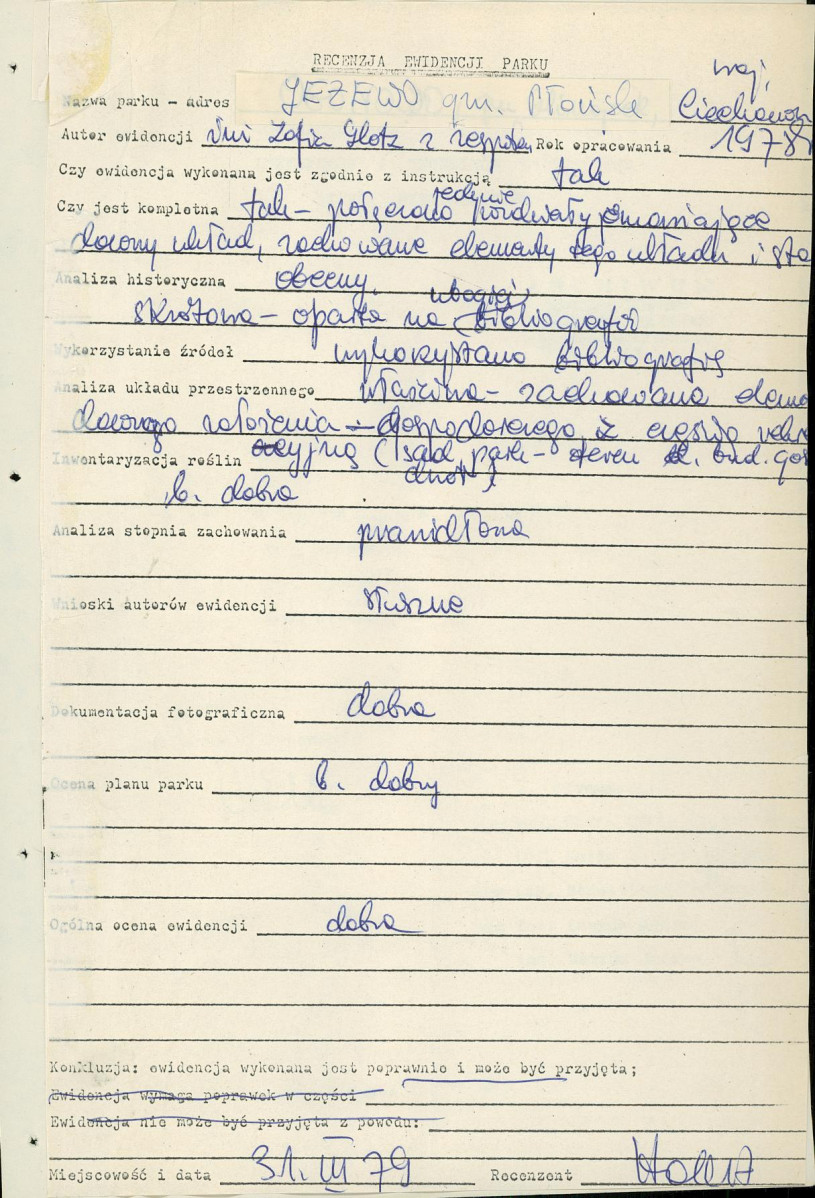 RECENZJA EWIDENCJI PARKU
woj.
Nazwa parku - adres JEŻEWO gm. Płońsk Ciechanow
Autor ewidencji Zofia Glotz z zespołem Rok opracowania 1978
Czy ewidencja wykonana jest zgodnie z instrukcją tak
jedynie
Czy jest kompletna tak - połączono
dawny układ, zachowane elementy tego układu i sta
Analiza historyczna obecny.
ubogiej
skrótowa - oparta na bibliografii
Wykorzystanie źródeł wykorzystano bibliografię
Analiza układu przestrzennego właściwa - zachowane eleme
dawnego założenia - gospodarczego z częścią rekre
Inwentaryzacja roślin acyjną (sad, park - teren d. bud. gos
b. dobra
Analiza stopnia zachowania prawidłowa
Wnioski autorów ewidencji słuszne
Dokumentacja fotograficzna dobra
Ocena planu parku b. dobry
Ogólna ocena ewidencji dobra
Konkluzja: ewidencja wykonana jest poprawnie i może być przyjęta;
Ewidencja wymaga poprawek w części
Ewidencja nie może być przyjęta z powodu:
Miejscowość i data 31. III 79 Recenzent